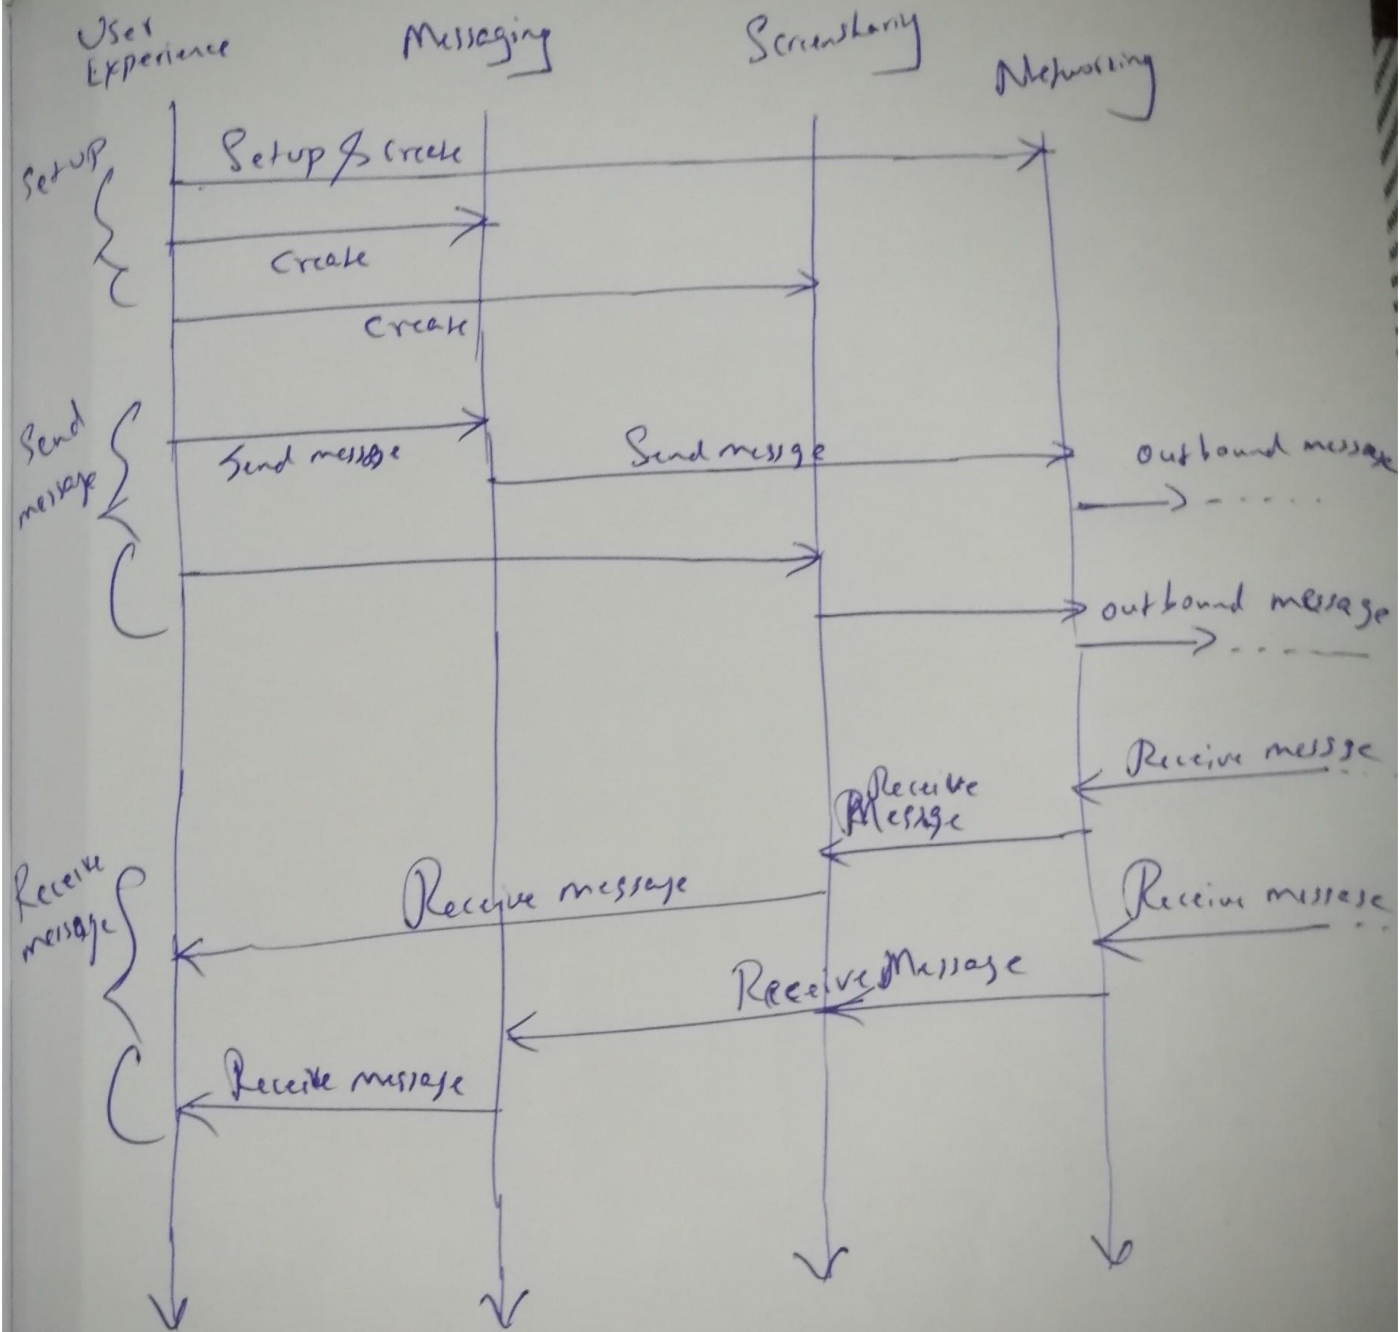 User
Experience
Messaging
Screensharing
Networking
Setup
Setup & Create
Create
Create
Send
message
Send message
Send messge
outbound message
outbound message
Receive messge
Receive
Message
Receive
message
Receive message
Receive message
Receive Message
Receive message